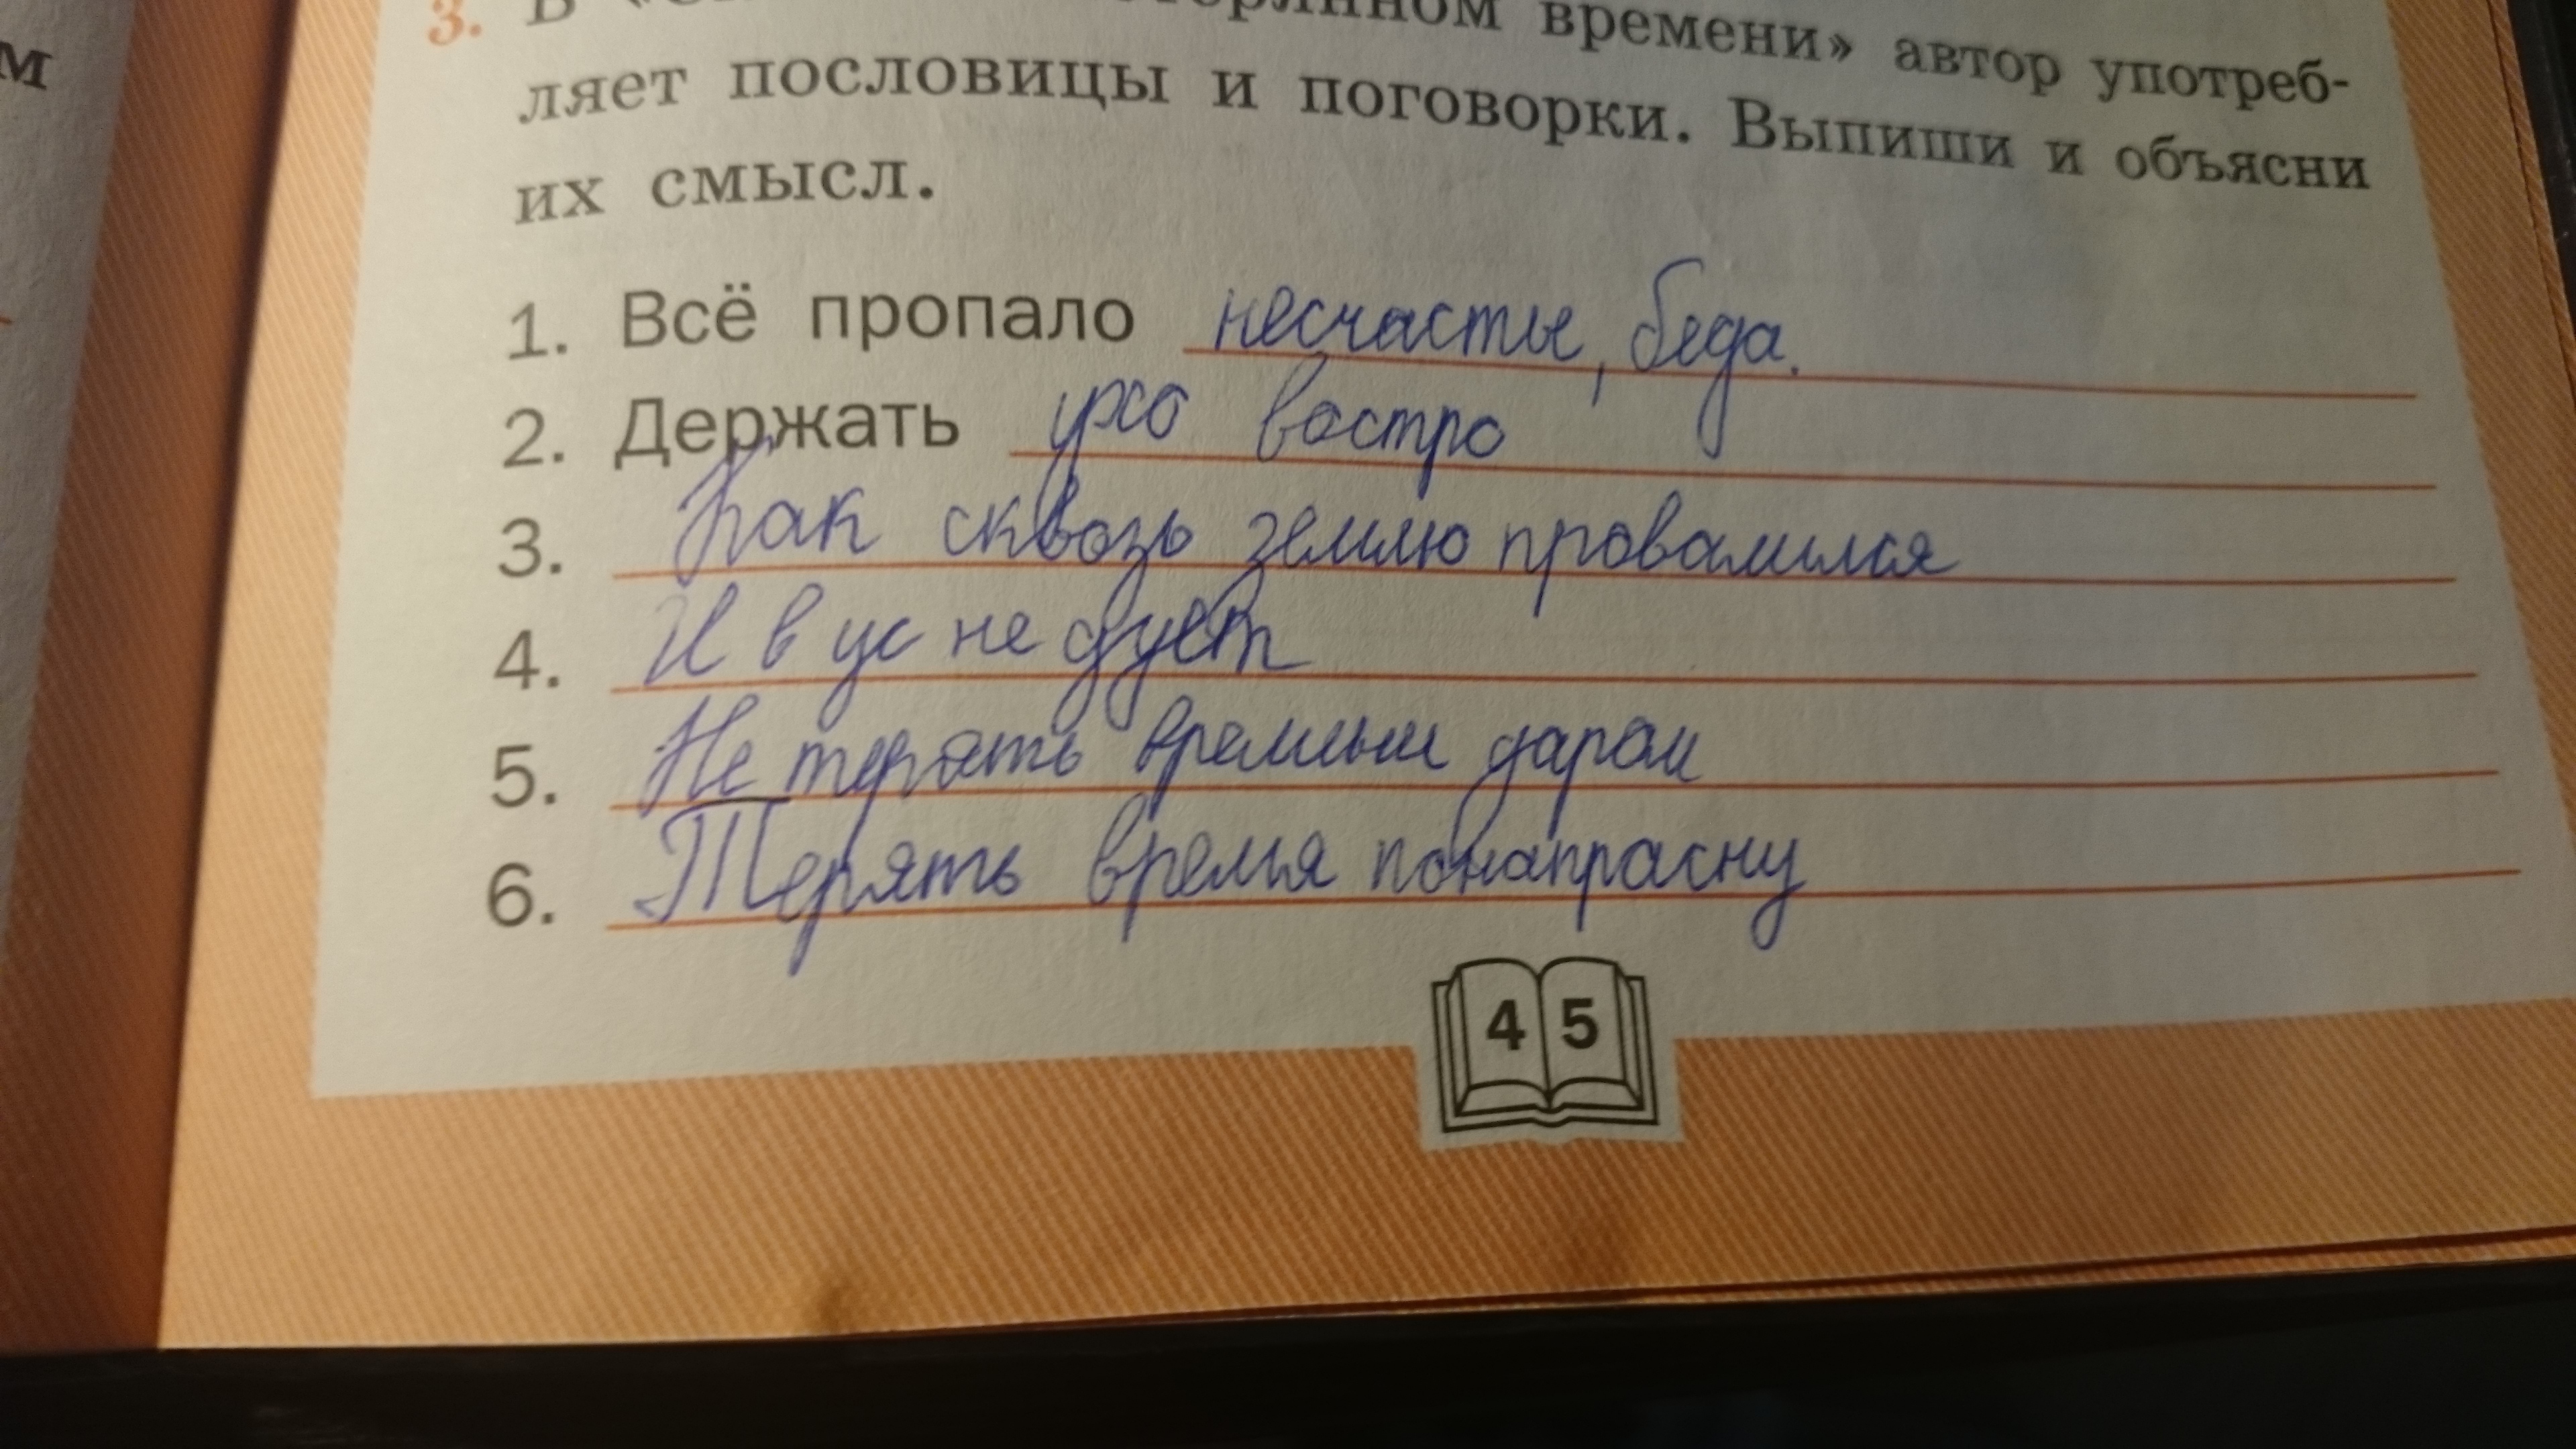 м
3. В «Ск потерянном времени» автор употреб-
ляет пословицы и поговорки. Выпиши и объясни
их смысл.
1. Всё пропало несчастье, беда.
2. Держать ухо востро
3. Как сквозь землю провалился
4. И в ус не дует
5. Не терять времени даром
6. Терять время понапрасну
45